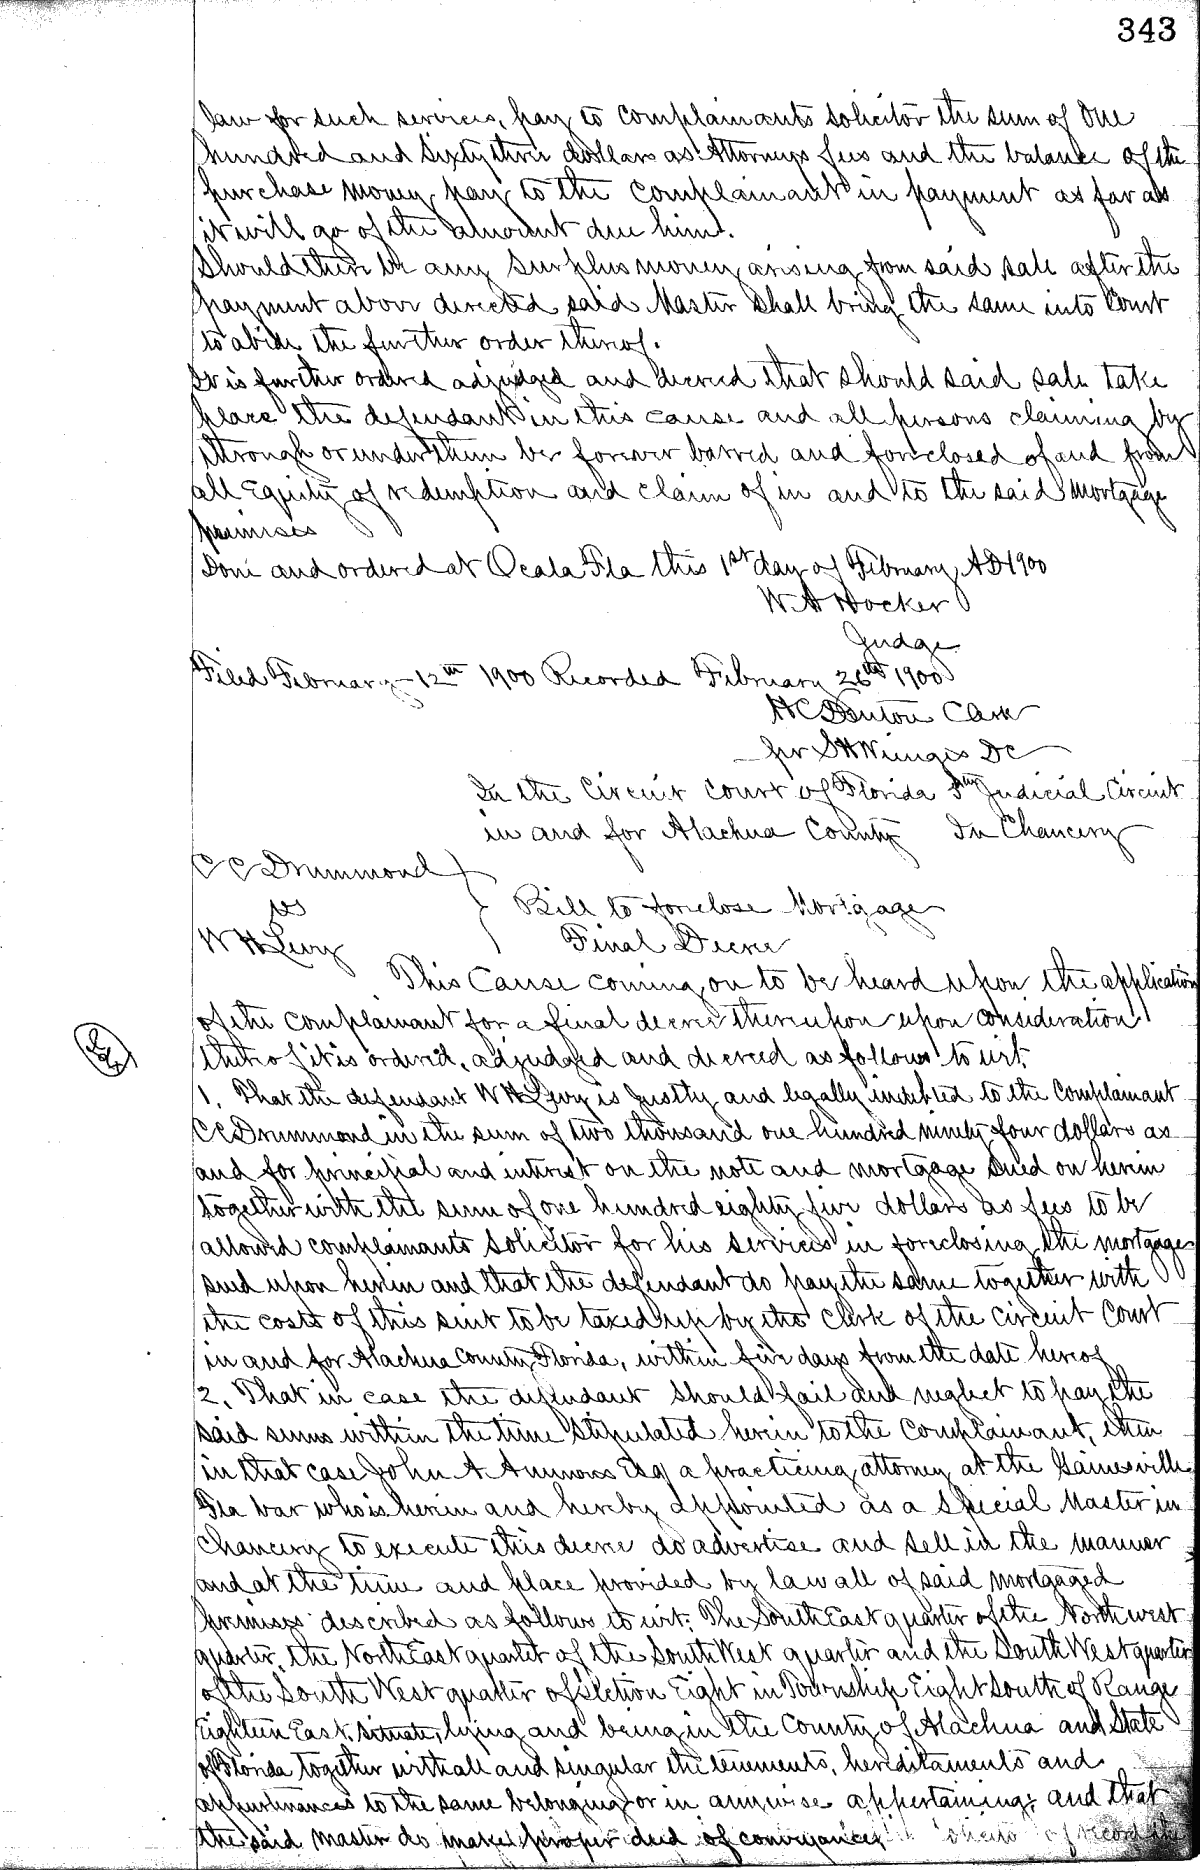 343
law for such services, pay to complainants solicitor the sum of One
hundred and Sixty three dollars as Attorneys fees and the balance of the
purchase money pay to the Complainant in payment as far as
it will go of the amount due him.
Should there be any surplus money arising from said sale after the
payment above directed said Master shall bring the same into Court
to abide the further order thereof.
It is further ordered adjudged and decreed that should said sale take
place the defendant in this cause and all persons claiming by
through or under them be forever barred and foreclosed of and from
all Equity of redemption and claim of in and to the said Mortgage
premises
Done and ordered at Ocala Fla this 1st day of February AD 1900
W A Hocker
Judge
Filed February 12th 1900 Recorded February 26th 1900
H C Denton Clerk
pr S H Wienges DC
In the Circuit Court of Florida 5th Judicial Circuit
in and for Alachua County In Chancery
C C Drummond
vs
Bill to foreclose Mortgage
W H Levy
Final Decree
This Cause coming on to be heard upon the application
of the complainant for a final decree thereupon upon consideration
thereof it is ordered, adjudged and decreed as follows to wit.
1. That the defendant W H Levy is justly and legally indebted to the Complainant
C C Drummond in the sum of two thousand one hundred ninety four dollars as
and for principal and interest on the note and mortgage sued on herein
together with the sum of one hundred eighty five dollars as fees to be
allowed complainants solicitor for his services in foreclosing the mortgage
sued upon herein and that the defendant do pay the same together with
the costs of this suit to be taxed up by the Clerk of the Circuit Court
in and for Alachua County Florida, within five days from the date hereof
2. That in case the defendant should fail and neglect to pay the
said sums within the time stipulated herein to the Complainant, then
in that case John A Ammons Esq a practicing attorney at the Gainesville
Fla bar who is herein and hereby appointed as a Special Master in
Chancery to execute this decree do advertise and sell in the manner
and at the time and place provided by law all of said mortgaged
premises described as follows to wit: The South East quarter of the North west
quarter, the North East quarter of the South West quarter and the South West quarter
of the South West quarter of Section Eight in Township Eight South of Range
Eighteen East. situate, lying and being in the County of Alachua and State
of Florida together with all and singular the tenements, hereditaments and
appurtenances to the same belonging or in anywise appertaining; and that
the said master do make proper deed of conveyance of record the